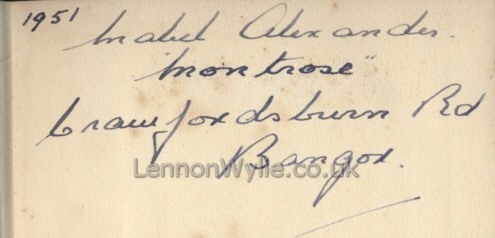 1951
Mabel Alexander.
"Montrose"
Crawfordsburn Rd
Bangor.
LennonWylie.co.uk